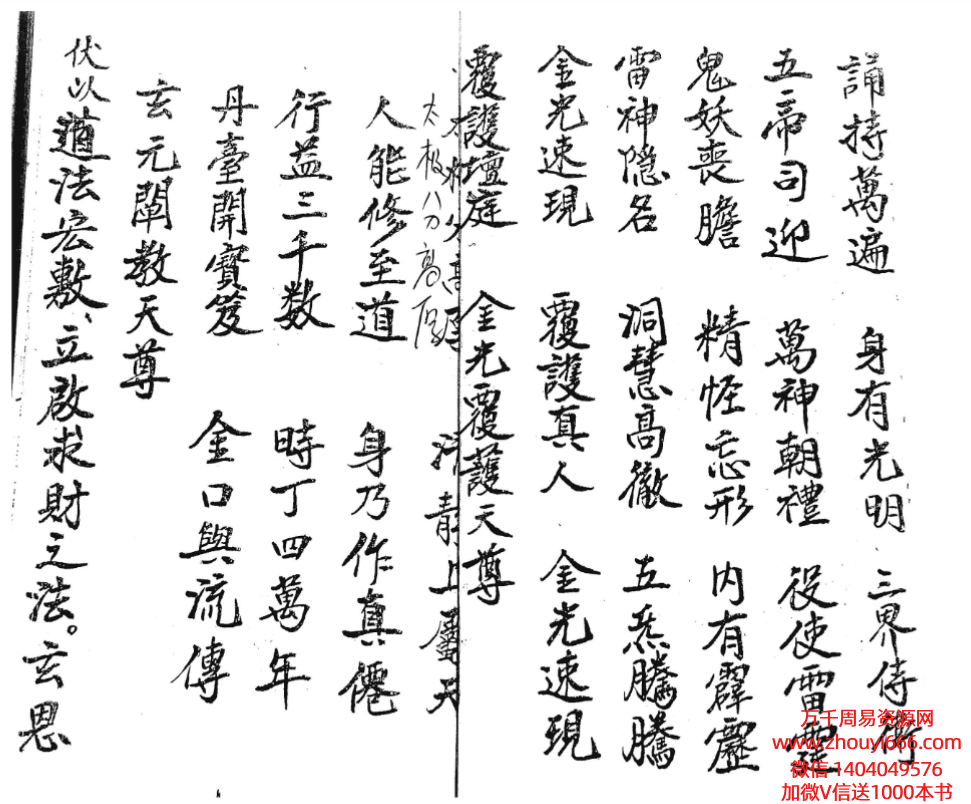 誦持萬遍　身有光明　三界侍衛
五帝司迎　萬神朝禮　役使雷霆
鬼妖喪膽　精怪忘形　内有霹靂
雷神隱名　洞慧高徹　五炁騰騰
金光速現　覆護真人　金光速現
覆護壇庭　金光覆護天尊
太极八刀高厚　青上屬天
人能修至道　身乃作真僊
行益三千数　時丁四萬年
丹臺開寶笈　金口與流傳
玄元闡教天尊
伏以道法宏敷、立啟求財之法。玄恩
万千周易资源网
www.zhouyi666.com
微信 1404049576
加微V信送1000本书